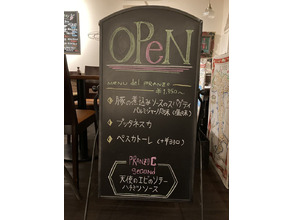 OPeN
MENU del PRANZO
◆ 豚の煮込みソースのスパゲティ
パルミジャーノ風味
◆ プッタネスカ
◆ ペスカトーレ (+¥330)
PRANZO C
second
天使のエビのソテー
ハチミツソース